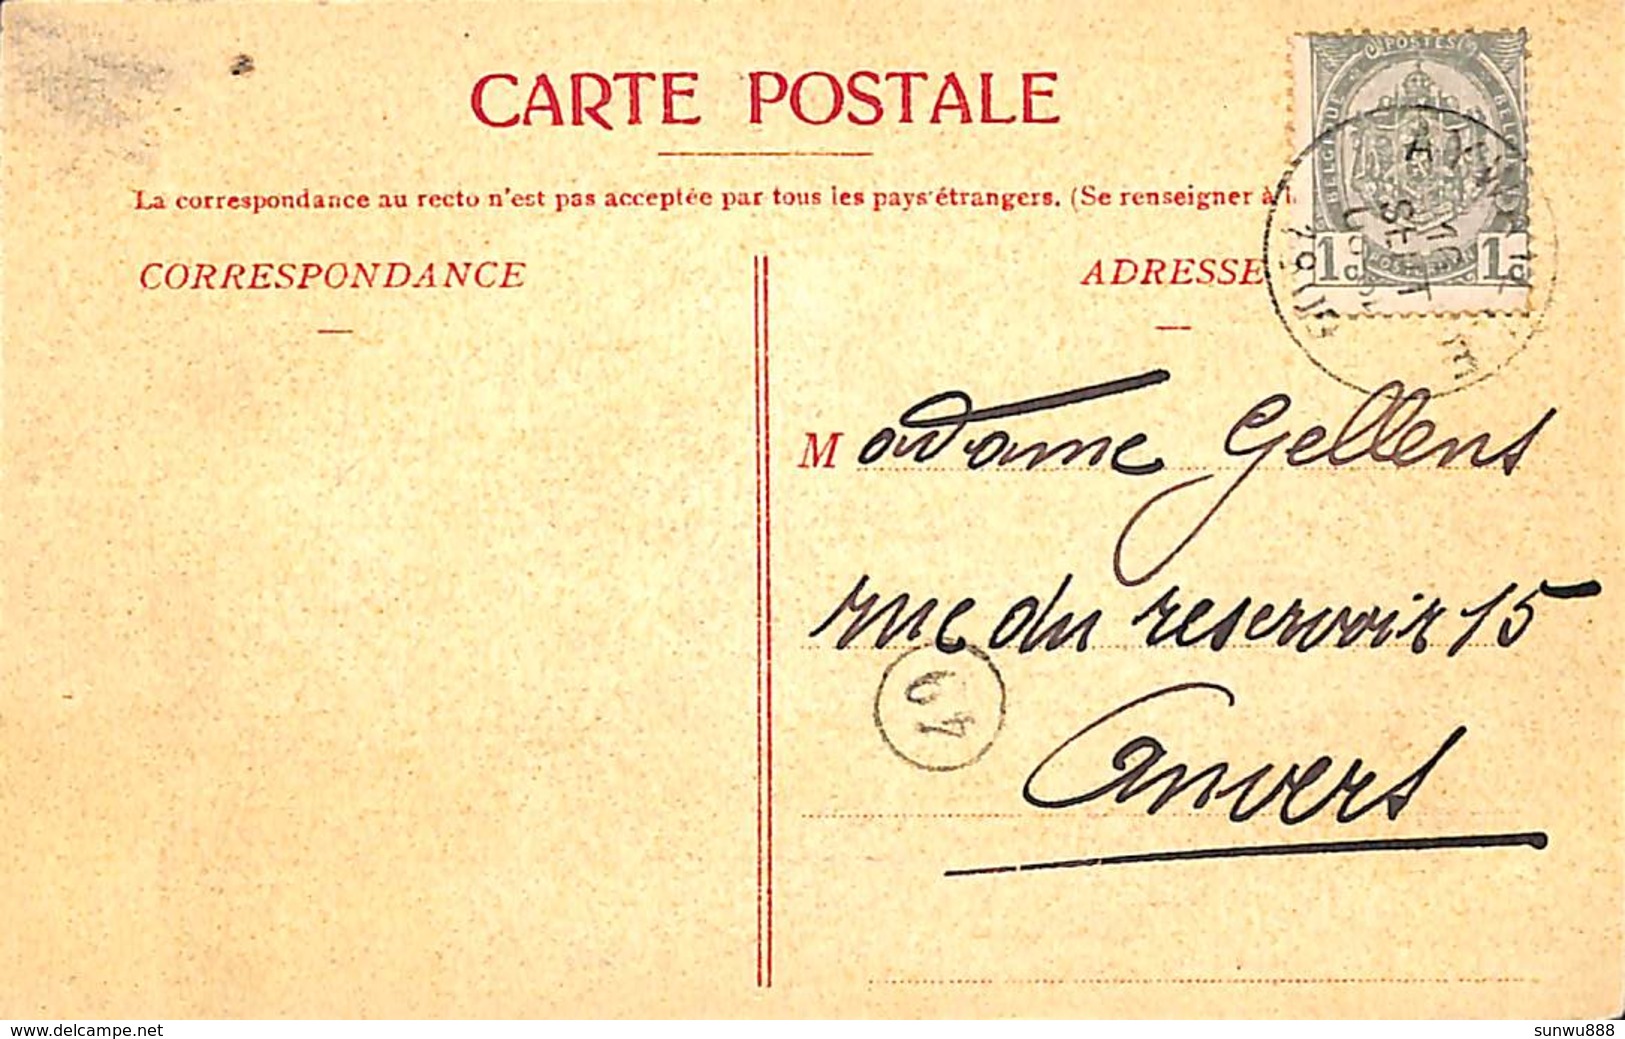 CARTE POSTALE
La correspondance au recto n'est pas acceptée par tous les pays étrangers. (Se renseigner à
CORRESPONDANCE
ADRESSE
POSTES
BELGIQUE
1 1
SEPT
Madame Gellens
rue du reservoir 15
Anvers
www.delcampe.net
sunwu888